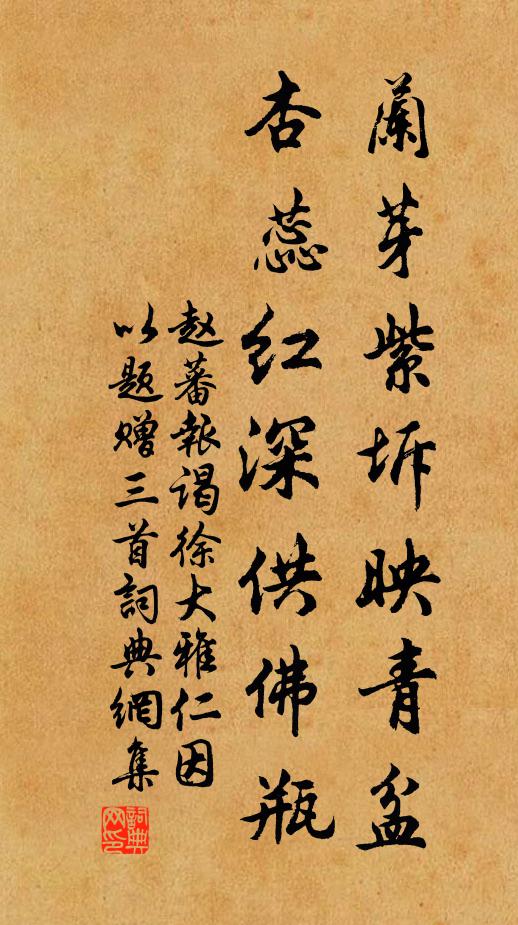 蘭芽紫坼映青盆
杏蕊红深供佛瓶
赵蕃報谒徐大雅仁因
以题赠三首詞典網集
詞典网印